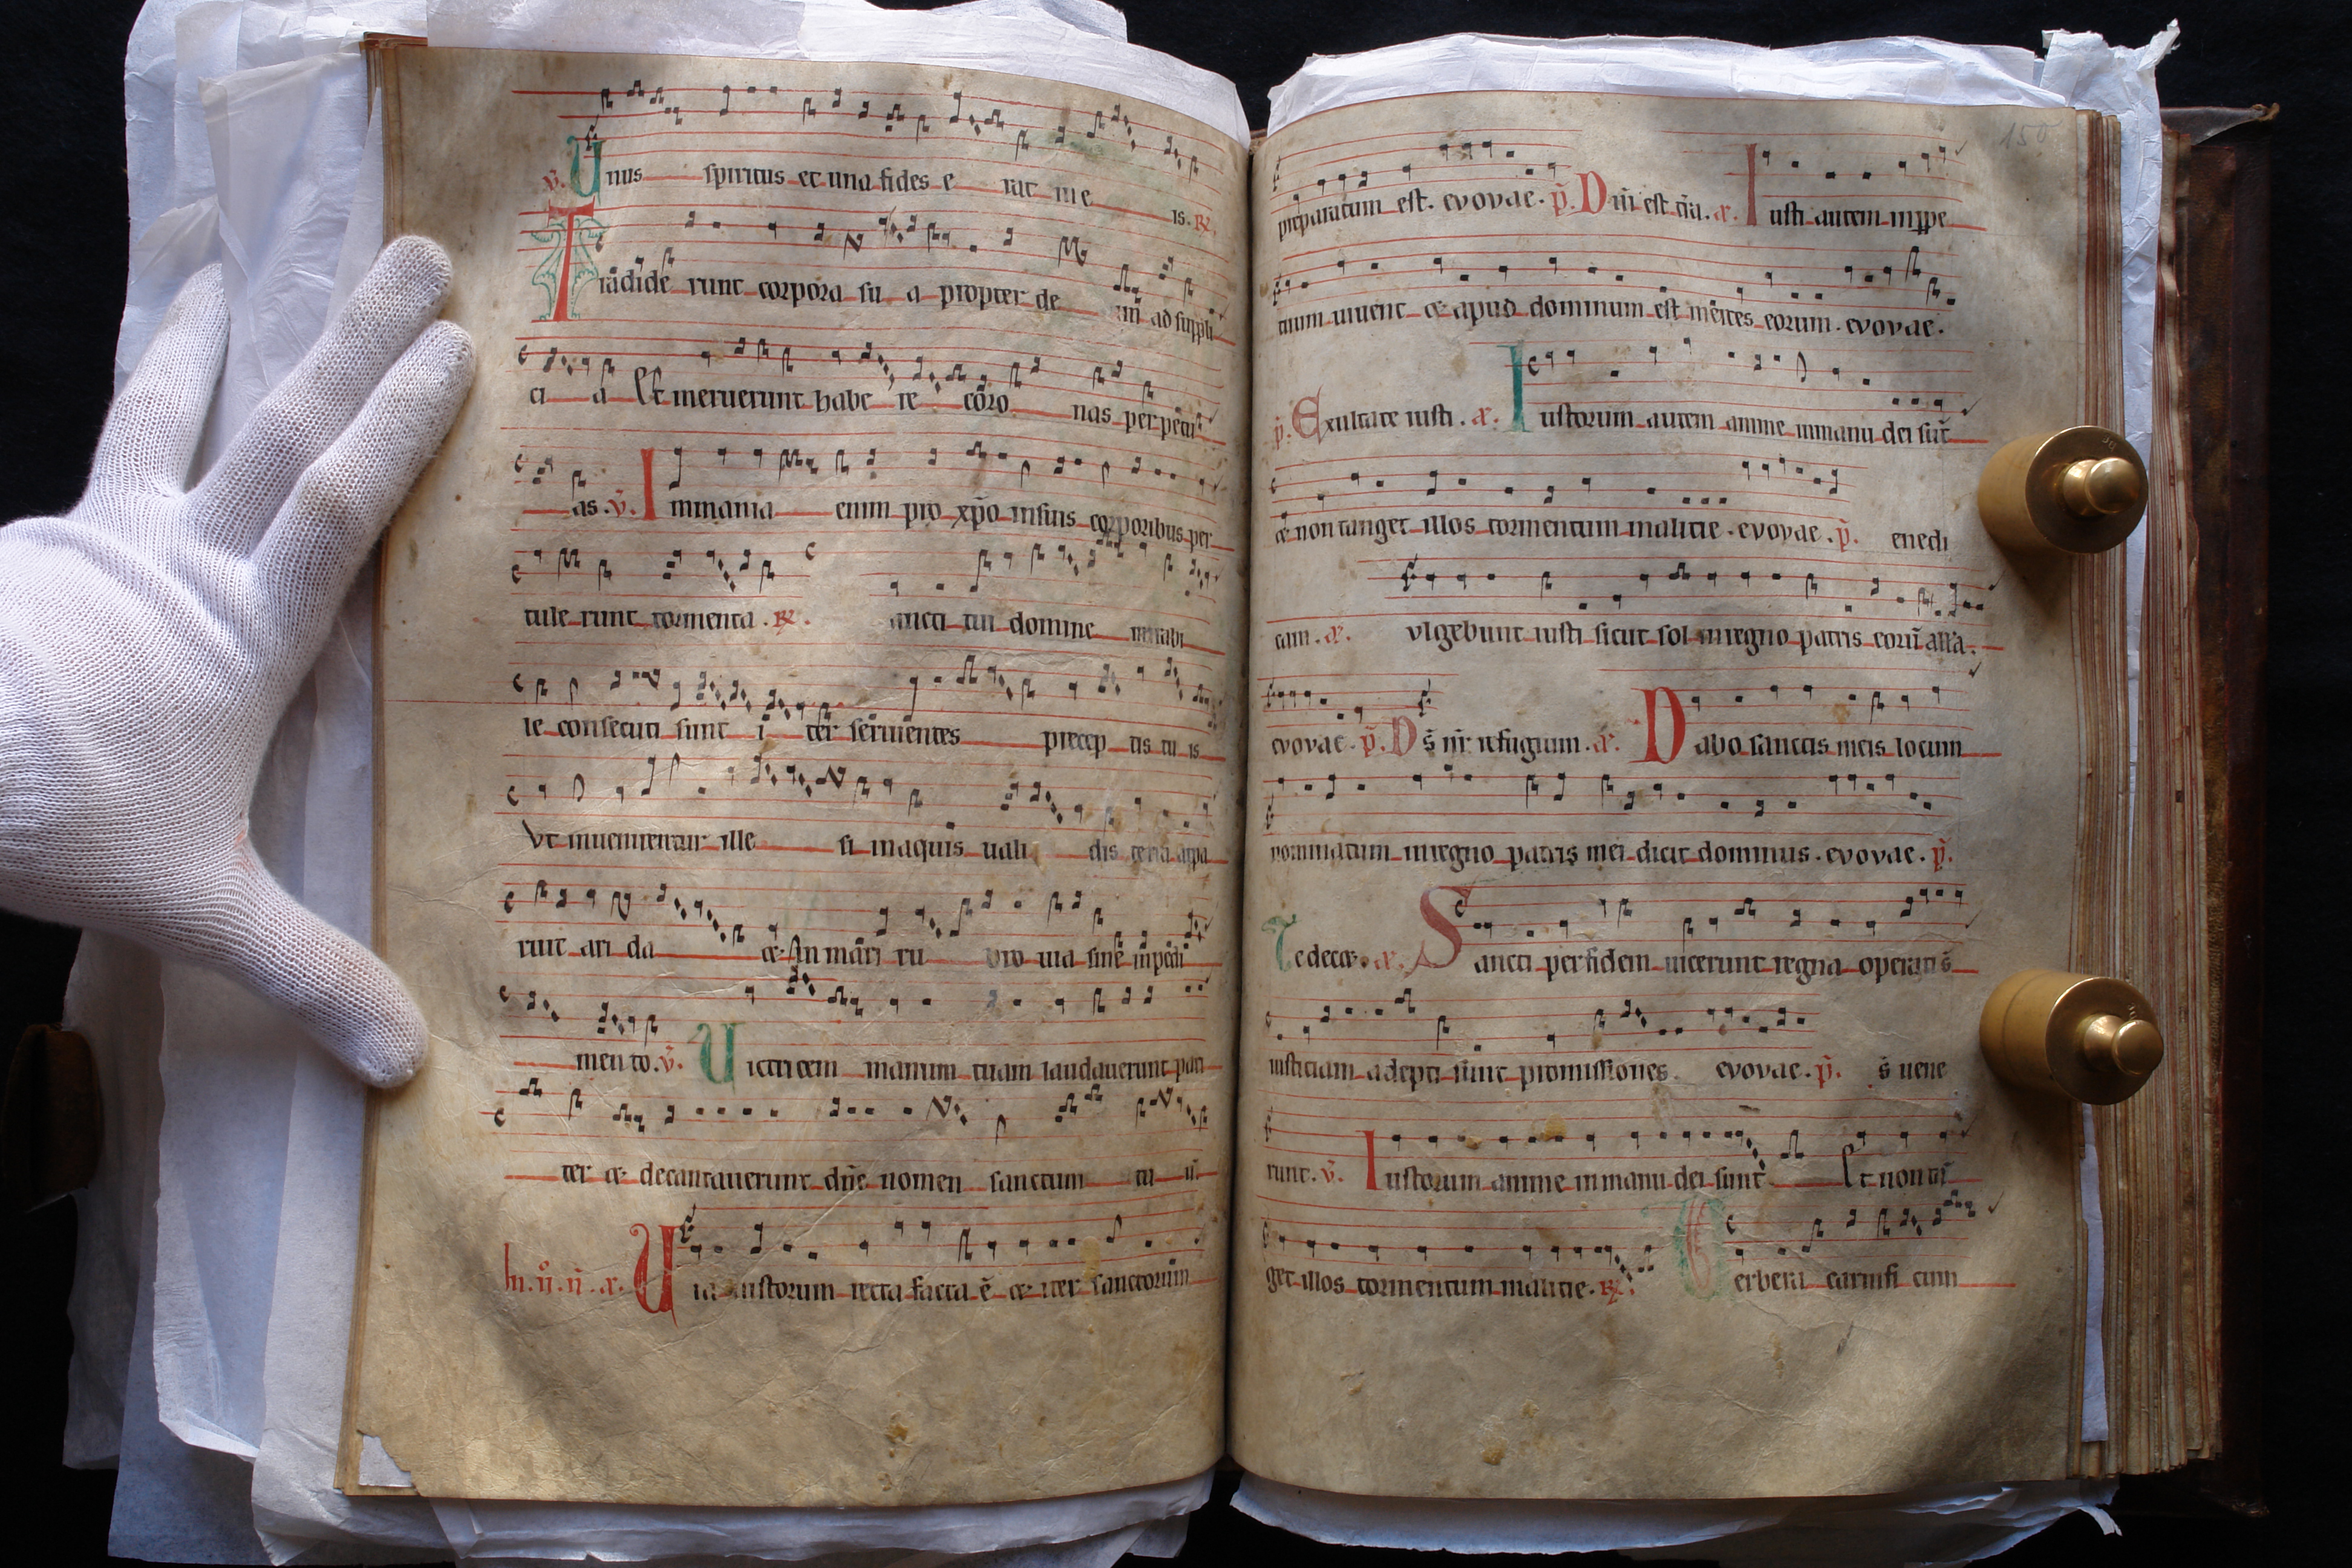 v̄. Unus spiritus et una fides e rat in e is. R̸.
Tradide runt corpora su a propter de um ad suppli
ci a Et meruerunt habe re coro nas perpetu
as. v̄. Immania enim pro xp̄o insuis corporibus per
tule runt tormenta. R̸. ancti tui domine mirabi
le consecuti sunt i ter seruientes precep tis tu is
Vt inuenirentur ille si inaquis uali dis terra appa
ruit ari da et In mari ru bro uia sine inpedi
mento. v̄. Uictricem manum tuam laudauerunt pari
ter et decantauerunt dn̄e nomen sanctum tu ū
In. ii. n̄. a. Uia iustorum recta facta ē et iter sanctorum
150
preparatum est. evovae. p̄. Dn̄i est t̄ra. a. Iusti autem inppe
tuum uiuent et apud dominum est merces eorum. evovae.
p̄. Exultate iusti. a. Iustorum autem anime inmanu dei sūt
et non tanget illos tormentum malitie. evovae. p̄. enedi
cam. a. vlgebunt iusti sicut sol inregno patris eorū alla.
evovae. p̄. Ds̄ nr̄ refugium. a. Dabo sanctis meis locum
nominatum inregno patris mei dicit dominus. evovae. p̄.
Te decet. a. Sancti perfidem uicerunt regna operati s̄
iusticiam adepti sunt promissiones evovae. p̄. s̄ uene
runt. v̄. Iustorum anime inmanu dei sunt Et non tā
get illos tormentum malitie. R̸. erbera carnifi cum